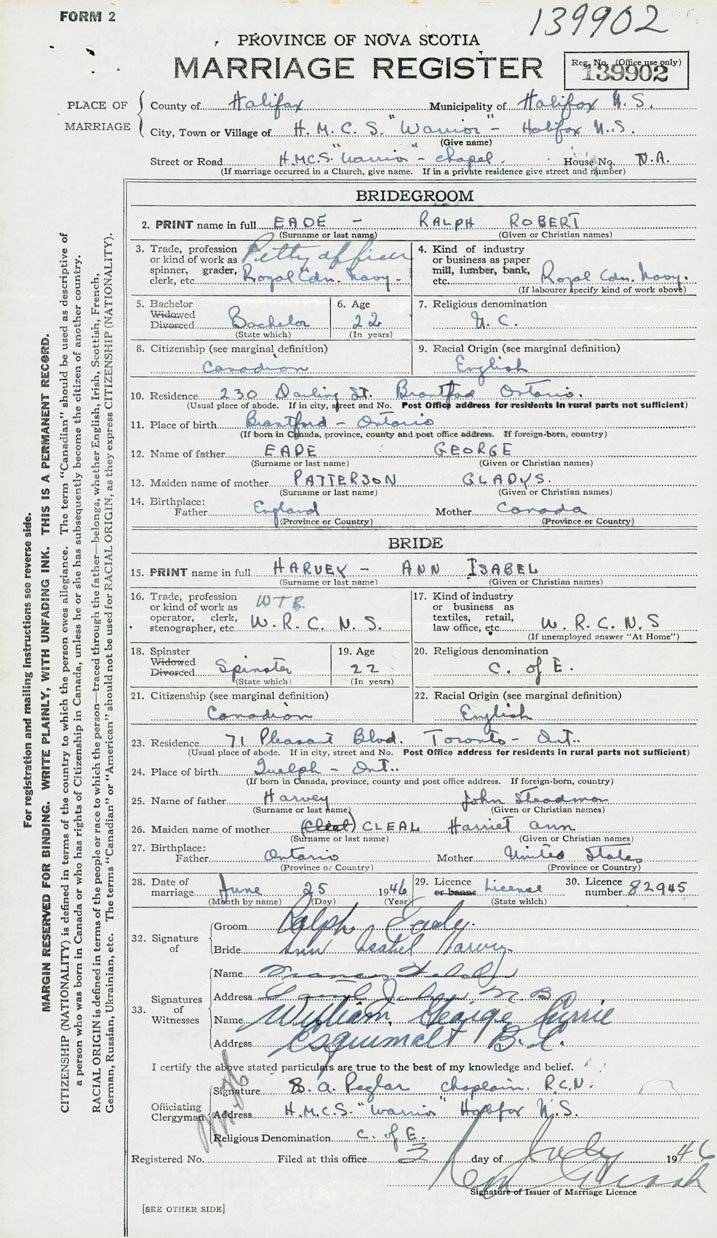 FORM 2
139902
PROVINCE OF NOVA SCOTIA
MARRIAGE REGISTER
Reg. No. (Office use only)
139902
PLACE OF MARRIAGE
County of Halifax Municipality of Halifax N.S.
City, Town or Village of H.M.C.S. "Warrior" - Halifax N.S.
(Give name)
Street or Road H.M.C.S. "Warrior" - chapel. House No. N.A.
(If marriage occurred in a Church, give name. If in a private residence give street and number)
BRIDEGROOM
2. PRINT name in full EADE - RALPH ROBERT
(Surname or last name) (Given or Christian names)
3. Trade, profession or kind of work as spinner, grader, clerk, etc. Petty officer Royal Cdn. Navy.
4. Kind of industry or business as paper mill, lumber, bank, etc. Royal Cdn. Navy.
(If labourer specify kind of work above)
5. Bachelor Widowed Divorced Bachelor
(State which)
6. Age 22
(In years)
7. Religious denomination U.C.
8. Citizenship (see marginal definition) Canadian
9. Racial Origin (see marginal definition) English
10. Residence 230 Darling St. Brantford Ontario.
(Usual place of abode. If in city, street and No. Post Office address for residents in rural parts not sufficient)
11. Place of birth Brantford - Ontario
(If born in Canada, province, county and post office address. If foreign-born, country)
12. Name of father EADE GEORGE
(Surname or last name) (Given or Christian names)
13. Maiden name of mother PATTERSON GLADYS.
(Surname or last name) (Given or Christian names)
14. Birthplace: Father England Mother Canada
(Province or Country) (Province or Country)
BRIDE
15. PRINT name in full HARVEY - ANN ISABEL
(Surname or last name) (Given or Christian names)
16. Trade, profession or kind of work as operator, clerk, stenographer, etc. WTR. W.R.C.N.S.
17. Kind of industry or business as textiles, retail, law office, etc. W.R.C.N.S
(If unemployed answer "At Home")
18. Spinster Widowed Divorced Spinster
(State which)
19. Age 22
(In years)
20. Religious denomination C. of E.
21. Citizenship (see marginal definition) Canadian
22. Racial Origin (see marginal definition) English
23. Residence 71 Pleasant Blvd. Toronto - Ont.
(Usual place of abode. If in city, street and No. Post Office address for residents in rural parts not sufficient)
24. Place of birth Guelph - Ont.
(If born in Canada, province, county and post office address. If foreign-born, country)
25. Name of father Harvey John Steadman
(Surname or last name) (Given or Christian names)
26. Maiden name of mother (Cleal) CLEAL Harriet Ann
(Surname or last name) (Given or Christian names)
27. Birthplace: Father Ontario Mother United States
(Province or Country) (Province or Country)
28. Date of marriage June 25 1946
(Month by name) (Day) (Year)
29. Licence or banns License
(State which)
30. Licence number 82945
32. Signature of
Groom Ralph Eade
Bride Ann Isabel Harvey
33. Signatures of Witnesses
Name
Address N.B.
Name William George Currie
Address Esquimalt B.C.
I certify the above stated particulars are true to the best of my knowledge and belief.
Officiating Clergyman
Signature A. Peglar Chaplain R.C.N.
Address H.M.C.S. "Warrior" Halifax N.S.
Religious Denomination C. of E.
Registered No. Filed at this office 3 day of July 1946
Signature of Issuer of Marriage Licence
[SEE OTHER SIDE]
For registration and mailing instructions see reverse side.
MARGIN RESERVED FOR BINDING. WRITE PLAINLY, WITH UNFADING INK. THIS IS A PERMANENT RECORD.
CITIZENSHIP (NATIONALITY) is defined in terms of the country to which the person owes allegiance. The term "Canadian" should be used as descriptive of
a person who was born in Canada or who has rights of Citizenship in Canada, unless he or she has subsequently become the citizen of another country.
RACIAL ORIGIN is defined in terms of the people or race to which the person—traced through the father—belongs, whether English, Irish, Scottish, French,
German, Russian, Ukrainian, etc. The terms "Canadian" or "American" should not be used for RACIAL ORIGIN, as they express CITIZENSHIP (NATIONALITY).